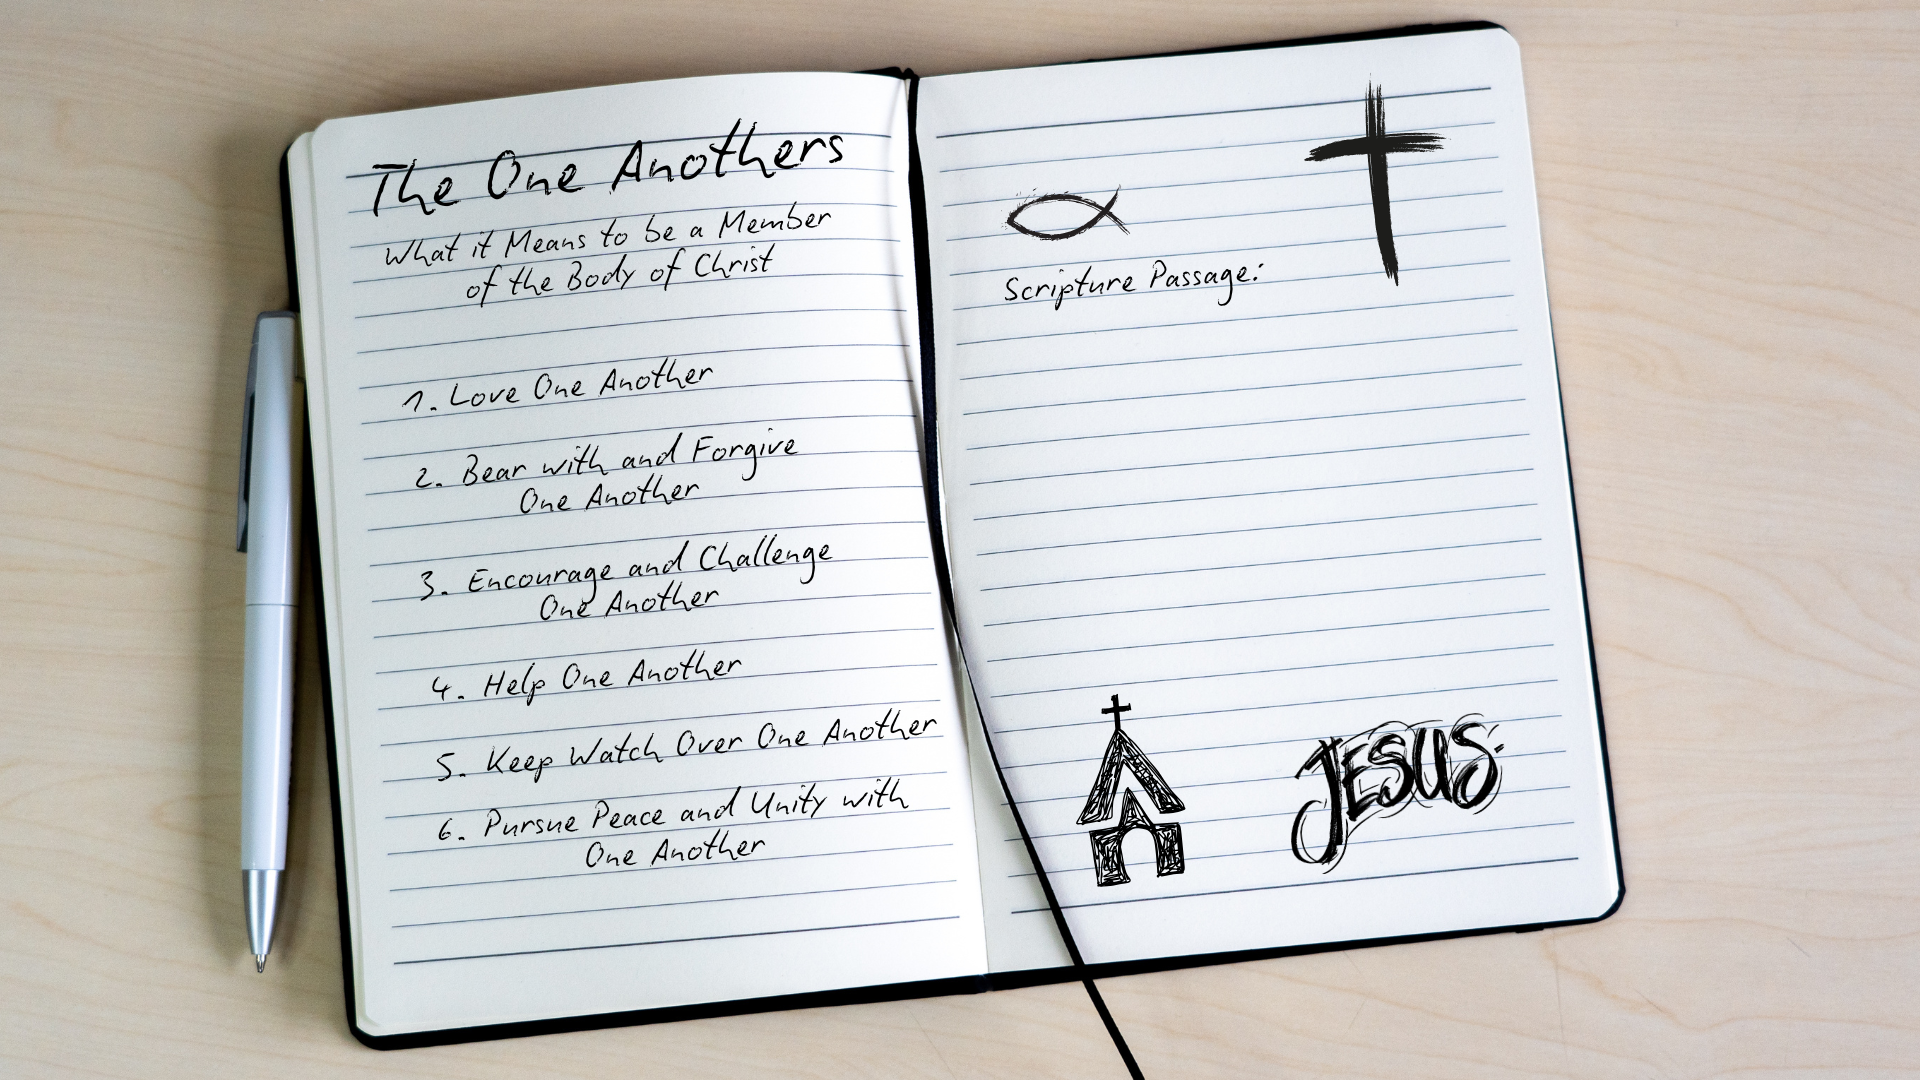 The One Anothers
What it Means to be a Member
of the Body of Christ
1. Love One Another
2. Bear with and Forgive
One Another
3. Encourage and Challenge
One Another
4. Help One Another
5. Keep Watch Over One Another
6. Pursue Peace and Unity with
One Another
Scripture Passage:
JESUS